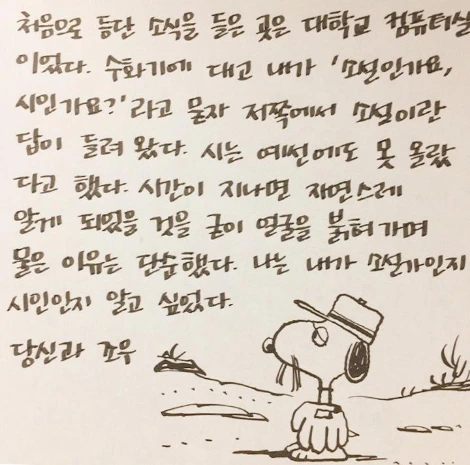 처음으로 등단 소식을 들은 곳은 대학교 컴퓨터실
이었다. 수화기에 대고 내가 '소설인가요,
시인가요?'라고 묻자 저쪽에서 소설이란
답이 들려 왔다. 시는 예선에도 못 올랐
다고 했다. 시간이 지나면 자연스레
알게 되었을 것을 굳이 얼굴을 붉혀가며
물은 이유는 단순했다. 나는 내가 소설가인지
시인인지 알고 싶었다.
당신과 조우